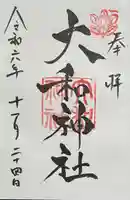 奉拝
大和神社
令和六年
十一月二十四日